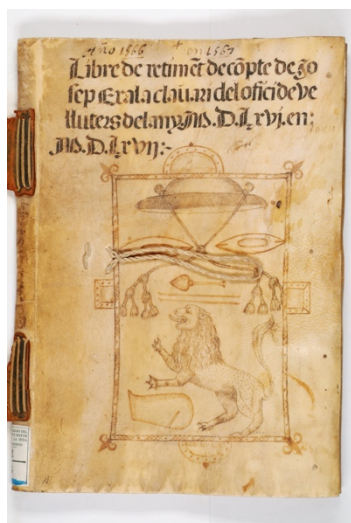 Año 1566 en 1567
Libre de retimẽt de cõpte de Jo
sep Exala clauari del ofici de ve
lluters del any M.D.Lxvj. en:
M.D.Lxvij:-